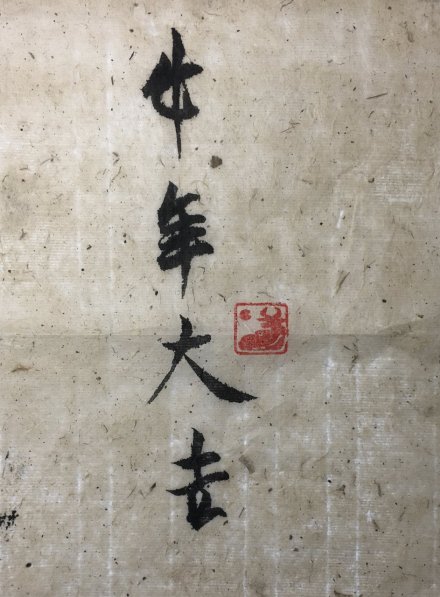 牛年大吉